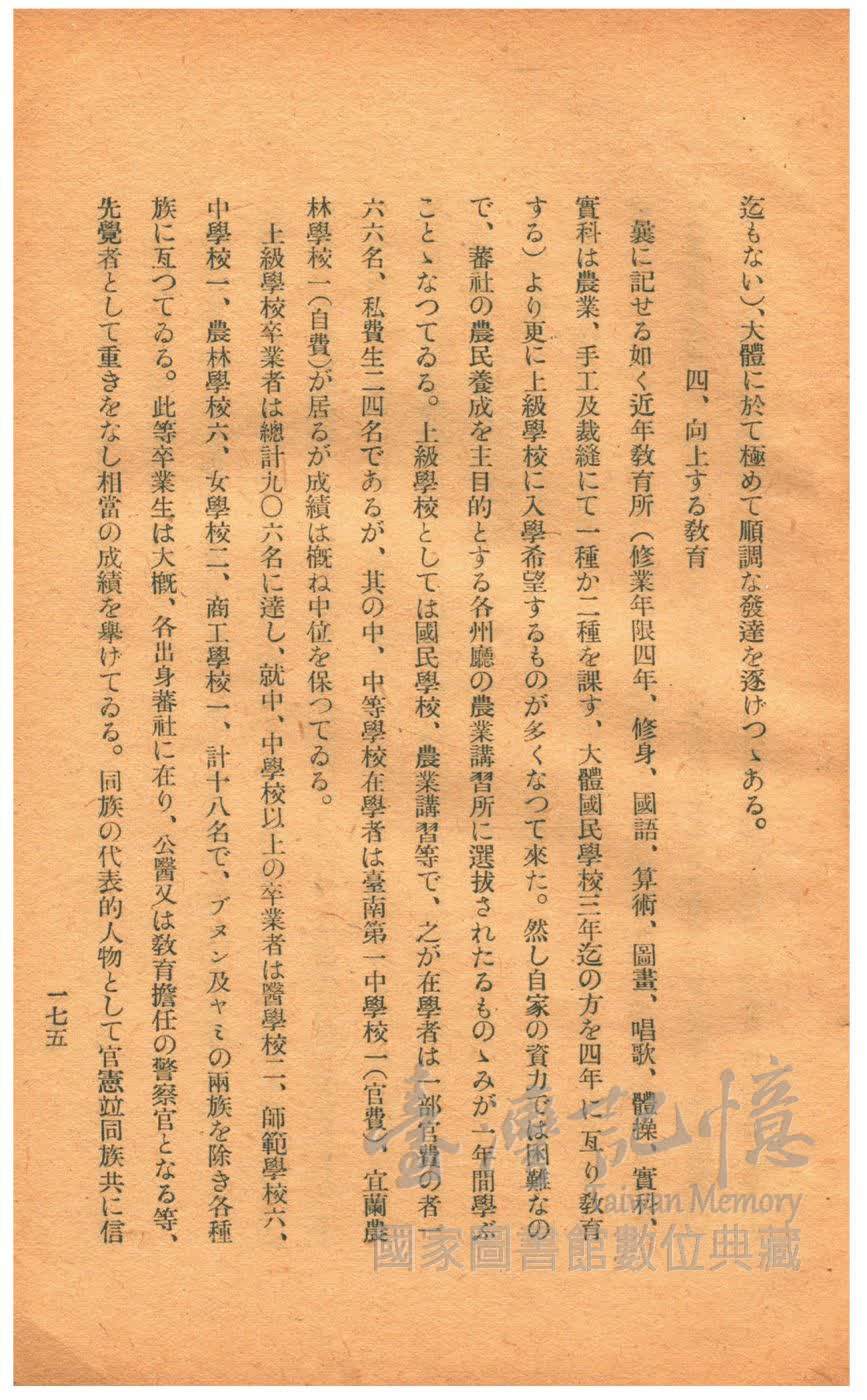 迄もない)、大體に於て極めて順調な發達を逐げつゝある。
四、向上する敎育
曩に記せる如く近年敎育所(修業年限四年、修身、國語、算術、圖畫、唱歌、體操、實科、
實科は農業、手工及裁縫にて一種か二種を課す、大體國民學校三年迄の方を四年に亙り敎育
する)より更に上級學校に入學希望するものが多くなつて來た。然し自家の資力では困難なの
で、蕃社の農民養成を主目的とする各州廳の農業講習所に選拔されたるものゝみが一年間學ぶ
ことゝなつてゐる。上級學校としては國民學校、農業講習等で、之が在學者は一部官費の者一
六六名、私費生二四名であるが、其の中、中等學校在學者は臺南第一中學校一(官費)、宜蘭農
林學校一(自費)が居るが成績は槪ね中位を保つてゐる。
上級學校卒業者は總計九〇六名に達し、就中、中學校以上の卒業者は醫學校二、師範學校六、
中學校一、農林學校六、女學校二、商工學校一、計十八名で、ブヌン及ヤミの兩族を除き各種
族に亙つてゐる。此等卒業生は大槪、各出身蕃社に在り、公醫又は敎育擔任の警察官となる等、
先覺者として重きをなし相當の成績を擧げてゐる。同族の代表的人物として官憲竝同族共に信
一七五
臺灣記憶
Taiwan Memory
國家圖書館數位典藏